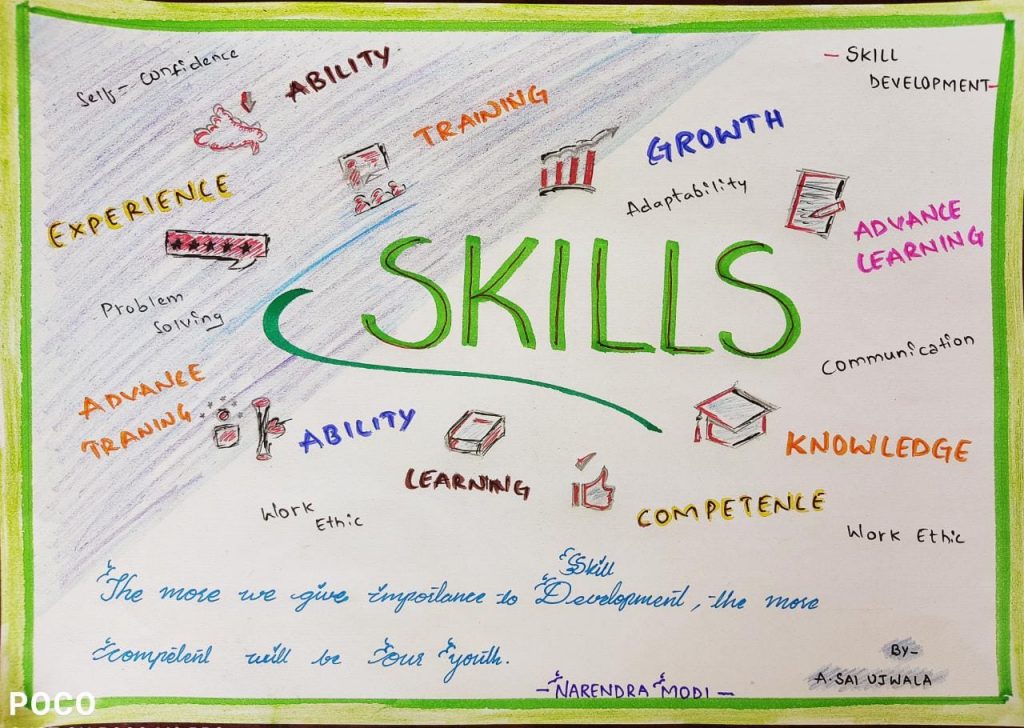 Self-Confidence
ABILITY
- SKILL
DEVELOPMENT-
TRAINING
GROWTH
EXPERIENCE
Adaptability
ADVANCE
LEARNING
SKILLS
Problem
Solving
Communication
ADVANCE
TRANING
ABILITY
KNOWLEDGE
LEARNING
COMPETENCE
Work
Ethic
Work Ethic
Skill
The more we give importance to Development, the more
competent will be our youth.
- NARENDRA MODI -
By-
A. SAI UJWALA
POCO